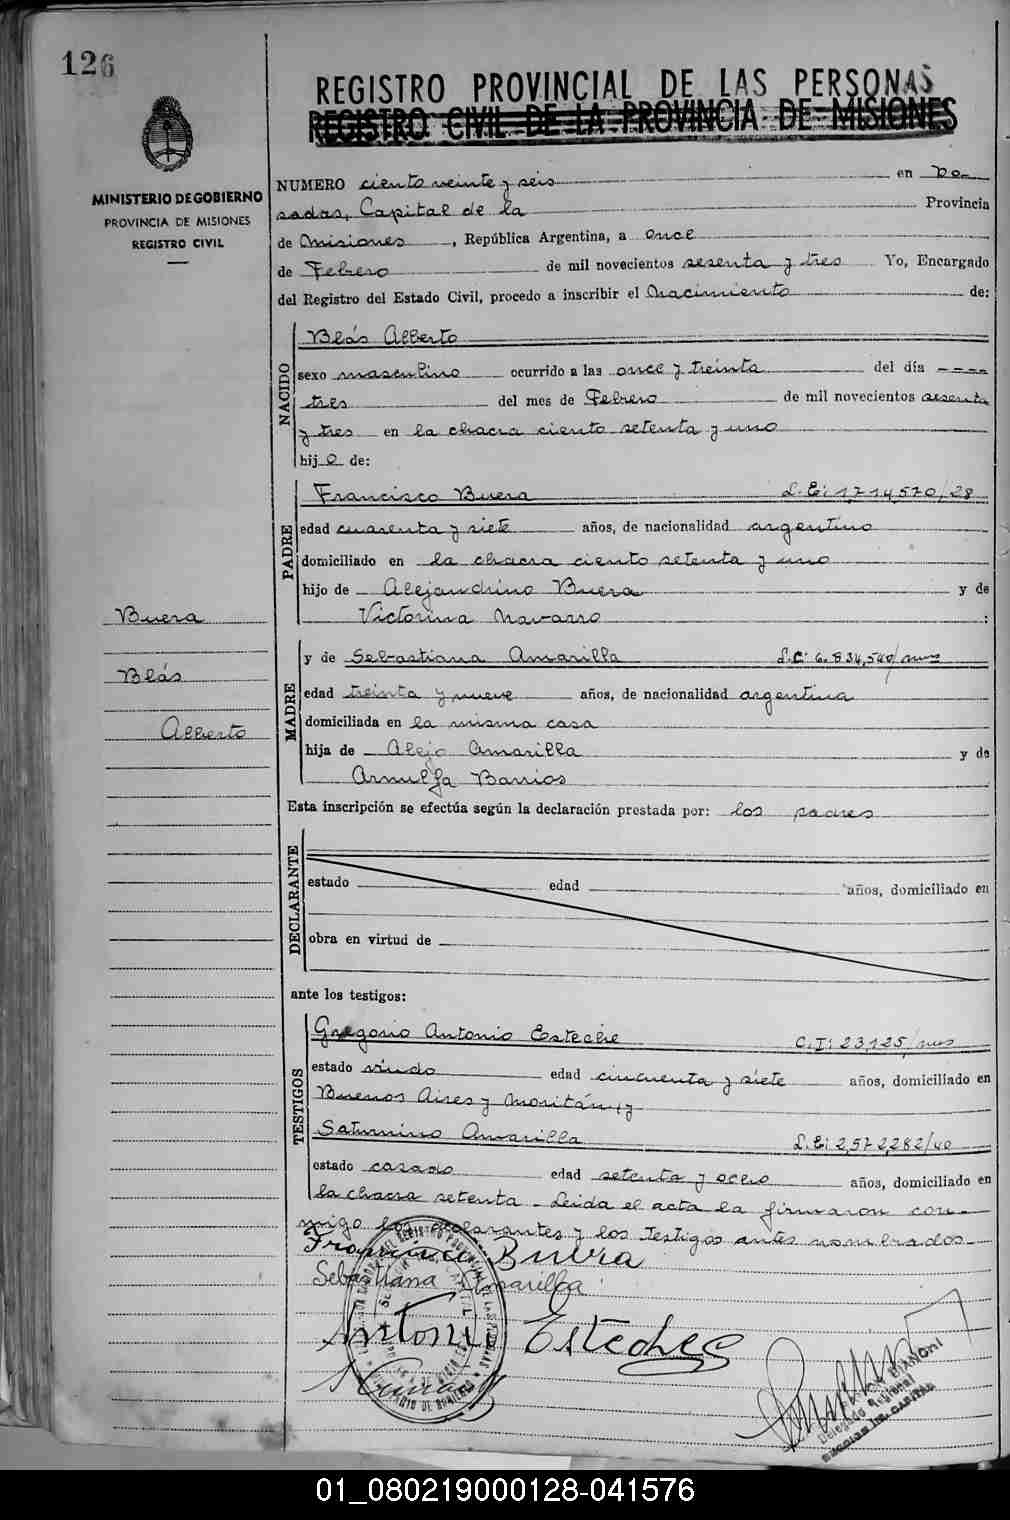 126
REGISTRO PROVINCIAL DE LAS PERSONAS
REGISTRO CIVIL DE LA PROVINCIA DE MISIONES
MINISTERIO DE GOBIERNO
PROVINCIA DE MISIONES
REGISTRO CIVIL
NUMERO ciento veinte y seis en Po-
sadas, Capital de la Provincia
de Misiones, República Argentina, a once
de Febrero de mil novecientos sesenta y tres Yo, Encargado
del Registro del Estado Civil, procedo a inscribir el Nacimiento de:
NACIDO
Blás Alberto
sexo masculino ocurrido a las once y treinta del día ----
tres del mes de Febrero de mil novecientos sesenta
y tres en la chacra ciento setenta y uno
hijo de:
PADRE
Francisco Buera L.E: 1,714,570/28
edad cuarenta y siete años, de nacionalidad argentino
domiciliado en la chacra ciento setenta y uno
hijo de Alejandrino Buera y de
Victorina Navarro :
Buera
Blás
Alberto
MADRE
y de Sebastiana Amarilla L.C: 6.834,540/mns
edad treinta y nueve años, de nacionalidad argentina
domiciliada en la misma casa
hija de Alejo Amarilla y de
Arnulfa Barrios
Esta inscripción se efectúa según la declaración prestada por: los padres
DECLARANTE
estado edad años, domiciliado en
obra en virtud de
ante los testigos:
TESTIGOS
Gregorio Antonio Esteche C.I: 23,125/mns
estado viudo edad cincuenta y siete años, domiciliado en
Buenos Aires y Moritán, y
Saturnino Amarilla L.E: 2,572,282/40
estado casado edad setenta y ocho años, domiciliado en
la chacra setenta - Leida el acta la firmaron con-
migo los declarantes y los testigos antes nombrados.-
Francisco Buera
Sebastiana Amarilla
Antonio Esteche
01_080219000128-041576